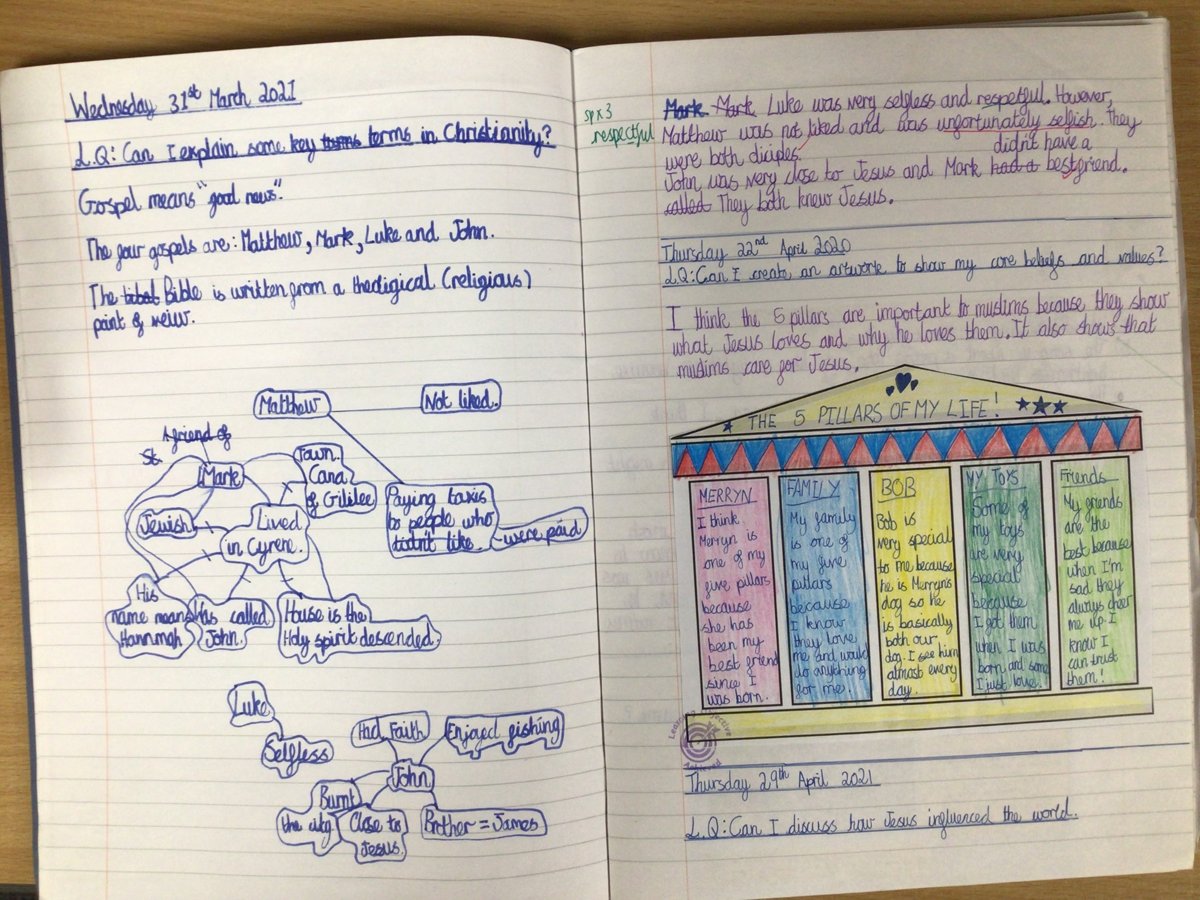 Wednesday 31st March 2021
L.Q: Can I explain some key terms terms in Christianity?
Gospel means "good news".
The four gospels are: Matthew, Mark, Luke and John.
The Bible is written from a thedigical (religious)
point of veiw.
Matthew
Not liked.
A friend of
St.
Mark
Town.
Cana
of Gililee
Jewish
Lived
in Cyrene.
Paying taxis
to people who
don't like.
were paid
His
name means
Hannmah
Was called
John.
House is the
Holy spirit descended.
Luke
Selfless
Had Faith
Enjoyed fishing
John
Burnt
the city
Close to
Jesus.
Brother = James
sp x 3
respectful
Mark Mark Luke was very selfless and respetful. However,
Matthew was not liked and was unfortunately selfish. They
were both diciples.
didn't have a
John was very close to Jesus and Mark had a best friend.
called They both knew Jesus.
Thursday 22nd April 2020
L.Q: Can I create an artwork to show my core beliefs and values?
I think the 5 pillars are important to muslims because they show
what Jesus loves and why he loves them. It also shows that
muslims care for Jesus.
THE 5 PILLARS OF MY LIFE!
MERRYN
I think
Merryn is
one of my
five pillars
because
she has
been my
best friend
since I
was born.
FAMILY
My family
is one of
my five
pillars
because
I know
they love
me and would
do anything
for me.
BOB
Bob is
very special
to me because
he is Merryn's
dog so he
is basically
both our
dog. I see him
almost every
day.
MY TOYS
Some of
my toys
are very
special
because
I got them
when I was
born and some
I just love.
Friends
My friends
are the
best because
when I'm
sad they
always cheer
me up. I
know I
can trust
them!
Learning Objective
Achieved
Thursday 29th April 2021
L.Q: Can I discuss how Jesus influenced the world.